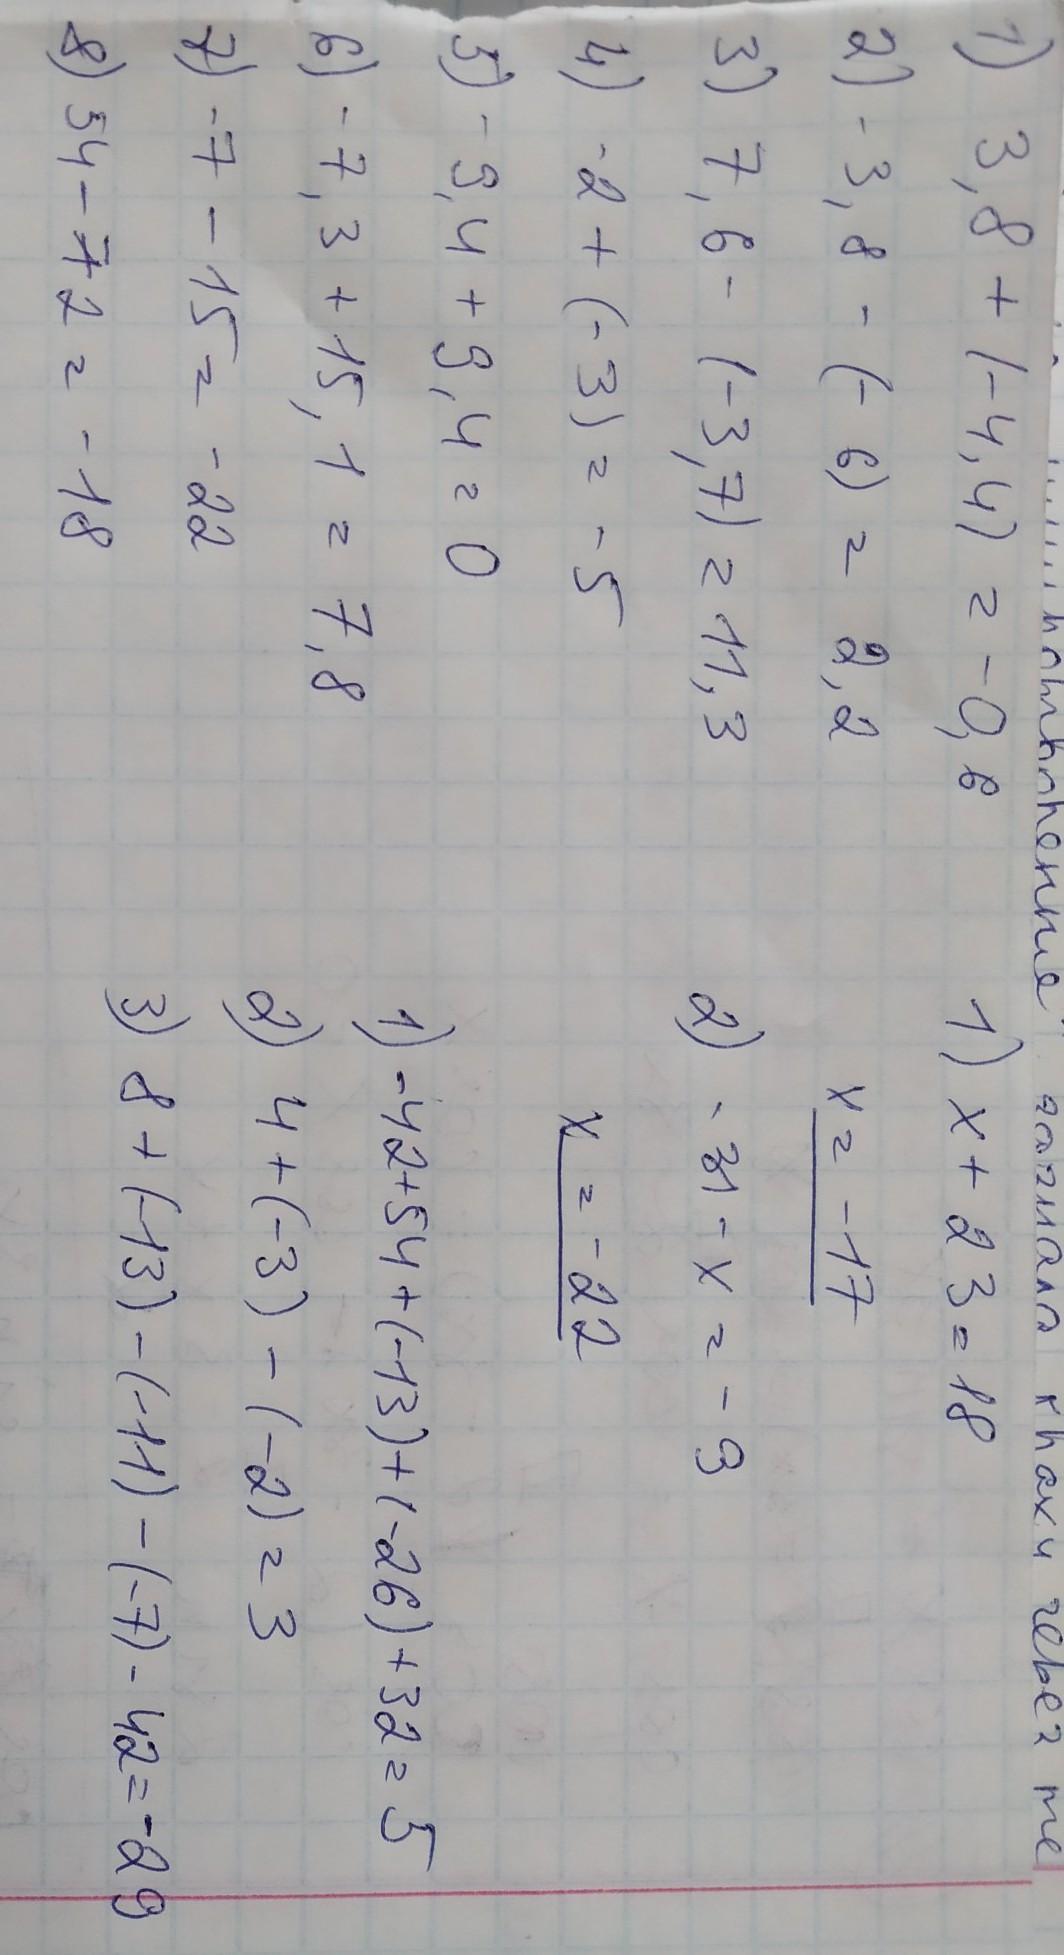 1) 3,8 + (-4,4) = -0,6
2) -3,8 - (-6) = 2,2
3) 7,6 - (-3,7) = 11,3
4) -2 + (-3) = -5
5) -9,4 + 9,4 = 0
6) -7,3 + 15,1 = 7,8
7) -7 - 15 = -22
8) 54 - 72 = -18
1) x + 23 = 18
x = -17
2) -31 - x = -9
x = -22
1) -42+54+(-13)+(-26)+32=5
2) 4+(-3) - (-2) = 3
3) 8+(-13)-(-11)-(-7)-42=-29